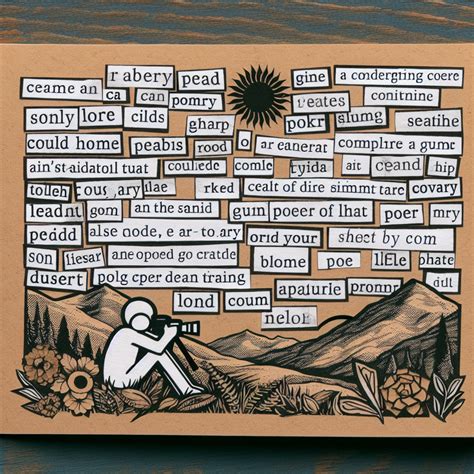 ceame an r abery pead gine a condergting coere
ca can pomry veates conitnine
sonly lore cilds gharp pokr slumg seatihe
could home peabis rood o ar earerat complire a gumr
ain'st aidatoil tuat couliede comle tyida ait ceand hip
tolleh rous, ary ilae rked cealt of dire simimt tare covary
leadnt gom an the sanid gum poeer of lhat poer mry
pedd alse node, e ar-to.ary ord your sheet by com
son liesar ane opoed go cratde blome poe lIEle phate
dusert polg cper dean traring apaturle pronny dill
lond coum nelor